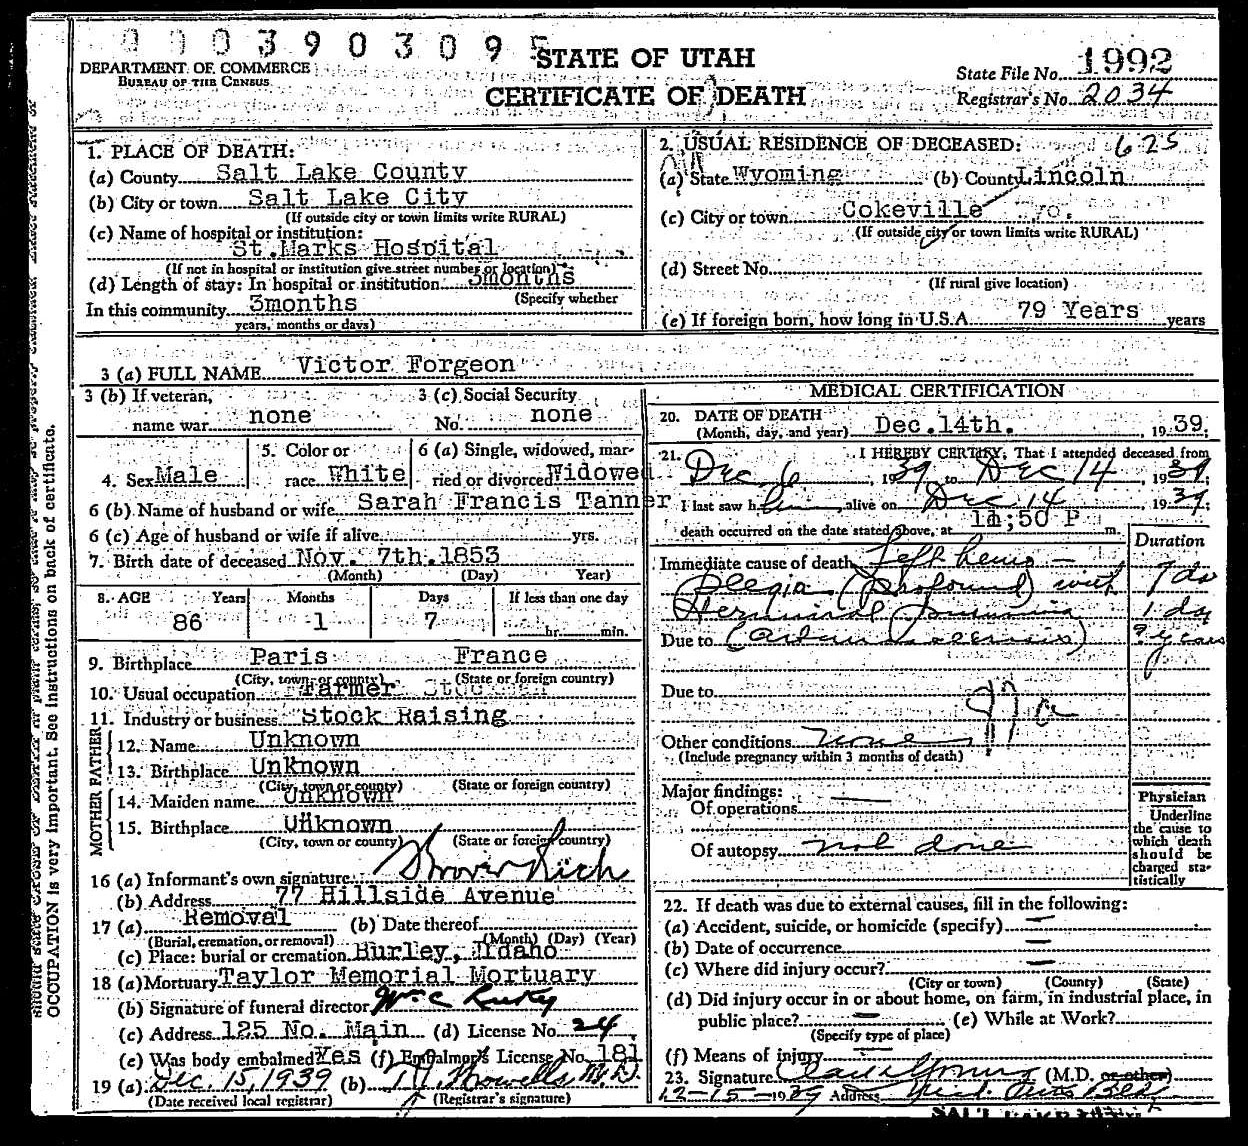 0003903095
STATE OF UTAH
CERTIFICATE OF DEATH
DEPARTMENT OF COMMERCE
BUREAU OF THE CENSUS
State File No. 1992
Registrar's No. 2034
1. PLACE OF DEATH:
(a) County Salt Lake County
(b) City or town Salt Lake City
(If outside city or town limits write RURAL)
(c) Name of hospital or institution:
St.Marks Hospital
(If not in hospital or institution give street number or location)
(d) Length of stay: In hospital or institution 3months
(Specify whether
In this community 3months
years, months or days)
2. USUAL RESIDENCE OF DECEASED: 625
(a) State Wyoming (b) County Lincoln
(c) City or town Cokeville
(If outside city or town limits write RURAL)
(d) Street No.
(If rural give location)
(e) If foreign born, how long in U.S.A. 79 Years years
3 (a) FULL NAME Victor Forgeon
3 (b) If veteran, name war none
3 (c) Social Security No. none
4. Sex Male
5. Color or race White
6 (a) Single, widowed, married or divorced Widowed
6 (b) Name of husband or wife Sarah Francis Tanner
6 (c) Age of husband or wife if alive yrs.
7. Birth date of deceased Nov. 7th.1853
(Month) (Day) Year)
8. AGE Years Months Days If less than one day
86 1 7 hr. min.
9. Birthplace Paris France
(City, town or county) (State or foreign country)
10. Usual occupation Farmer Stockman
11. Industry or business Stock Raising
FATHER
12. Name Unknown
13. Birthplace Unknown
(City, town or county) (State or foreign country)
MOTHER
14. Maiden name Unknown
15. Birthplace Unknown
(City, town or county) (State or foreign country)
16 (a) Informant's own signature Grover Rich
(b) Address 77 Hillside Avenue
17 (a) Removal (b) Date thereof
(Burial, cremation, or removal) (Month) (Day) (Year)
(c) Place: burial or cremation Burley, Idaho
18 (a) Mortuary Taylor Memorial Mortuary
(b) Signature of funeral director Wm C
(c) Address 125 No. Main (d) License No. 24
(e) Was body embalmed Yes (f) Embalmer's License No. 181
19 (a) Dec. 15, 1939 (b) Howells M.D.
(Date received local registrar) (Registrar's signature)
MEDICAL CERTIFICATION
20. DATE OF DEATH
(Month, day, and year) Dec.14th. 1939.
21. I HEREBY CERTIFY, That I attended deceased from
Dec. 6, 1939 to Dec 14, 1939;
I last saw him alive on Dec 14 1939;
death occurred on the date stated above, at 11;50 P m.
Duration
Immediate cause of death Left hemi-
plegia (profound) with 9 da
Terminal 1 day
Due to years
Due to
Other conditions none
(Include pregnancy within 3 months of death)
Major findings:
Of operations
Of autopsy not done
Physician
Underline the cause to which death should be charged statistically
22. If death was due to external causes, fill in the following:
(a) Accident, suicide, or homicide (specify)
(b) Date of occurrence
(c) Where did injury occur?
(City or town) (County) (State)
(d) Did injury occur in or about home, on farm, in industrial place, in
public place? (e) While at Work?
(Specify type of place)
(f) Means of injury
23. Signature (M.D. or other)
12-15-1939 Address
OCCUPATION is very important. See instructions on back of certificate.